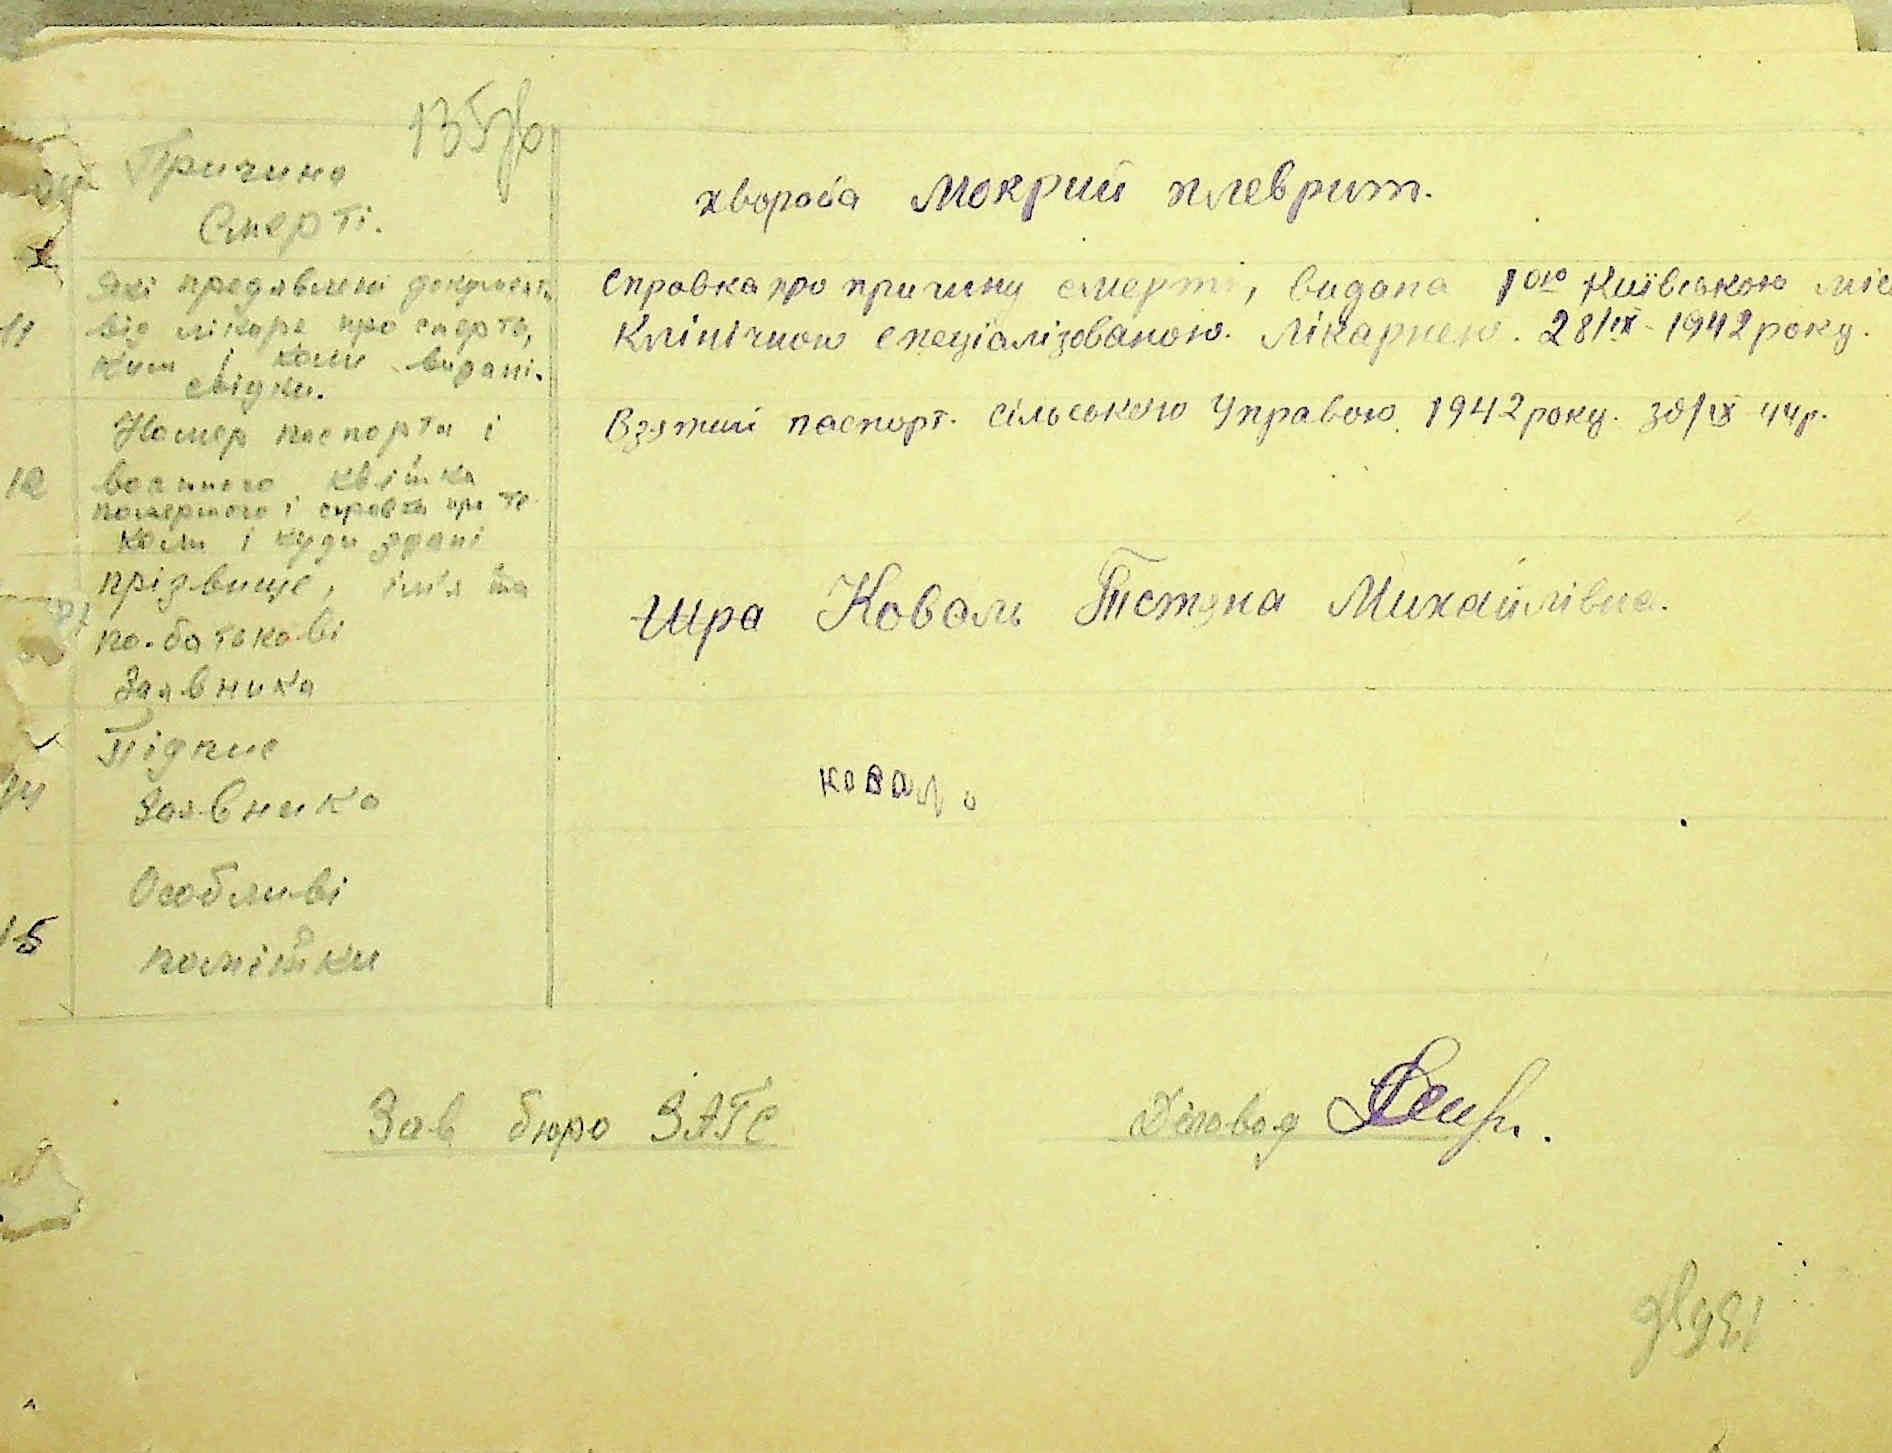 135
Причина
Смерті.
хвороба Мокрий плеврит.
Які предявлені документи
від лікаря про смерть,
Ким і коли видані.
свідки.
11
Справка про причину смерті, видана 1ою Київською міс
Клінічною спеціалізованою. Лікарнею. 28/IX - 1942 року.
Номер паспорта і
воєнного квітка
помершого і справка про те
коли і куди здані
12
Взятий паспорт. Сільською Управою 1942 року. 30/IX 44р.
прізвище, ім'я та
по-батькові
Заявника
Коваль Тетяна Михайлівна.
Підпис
Заявника
коваль
Особливі
помітки
15
Зав бюро ЗАГС
Діловод
136